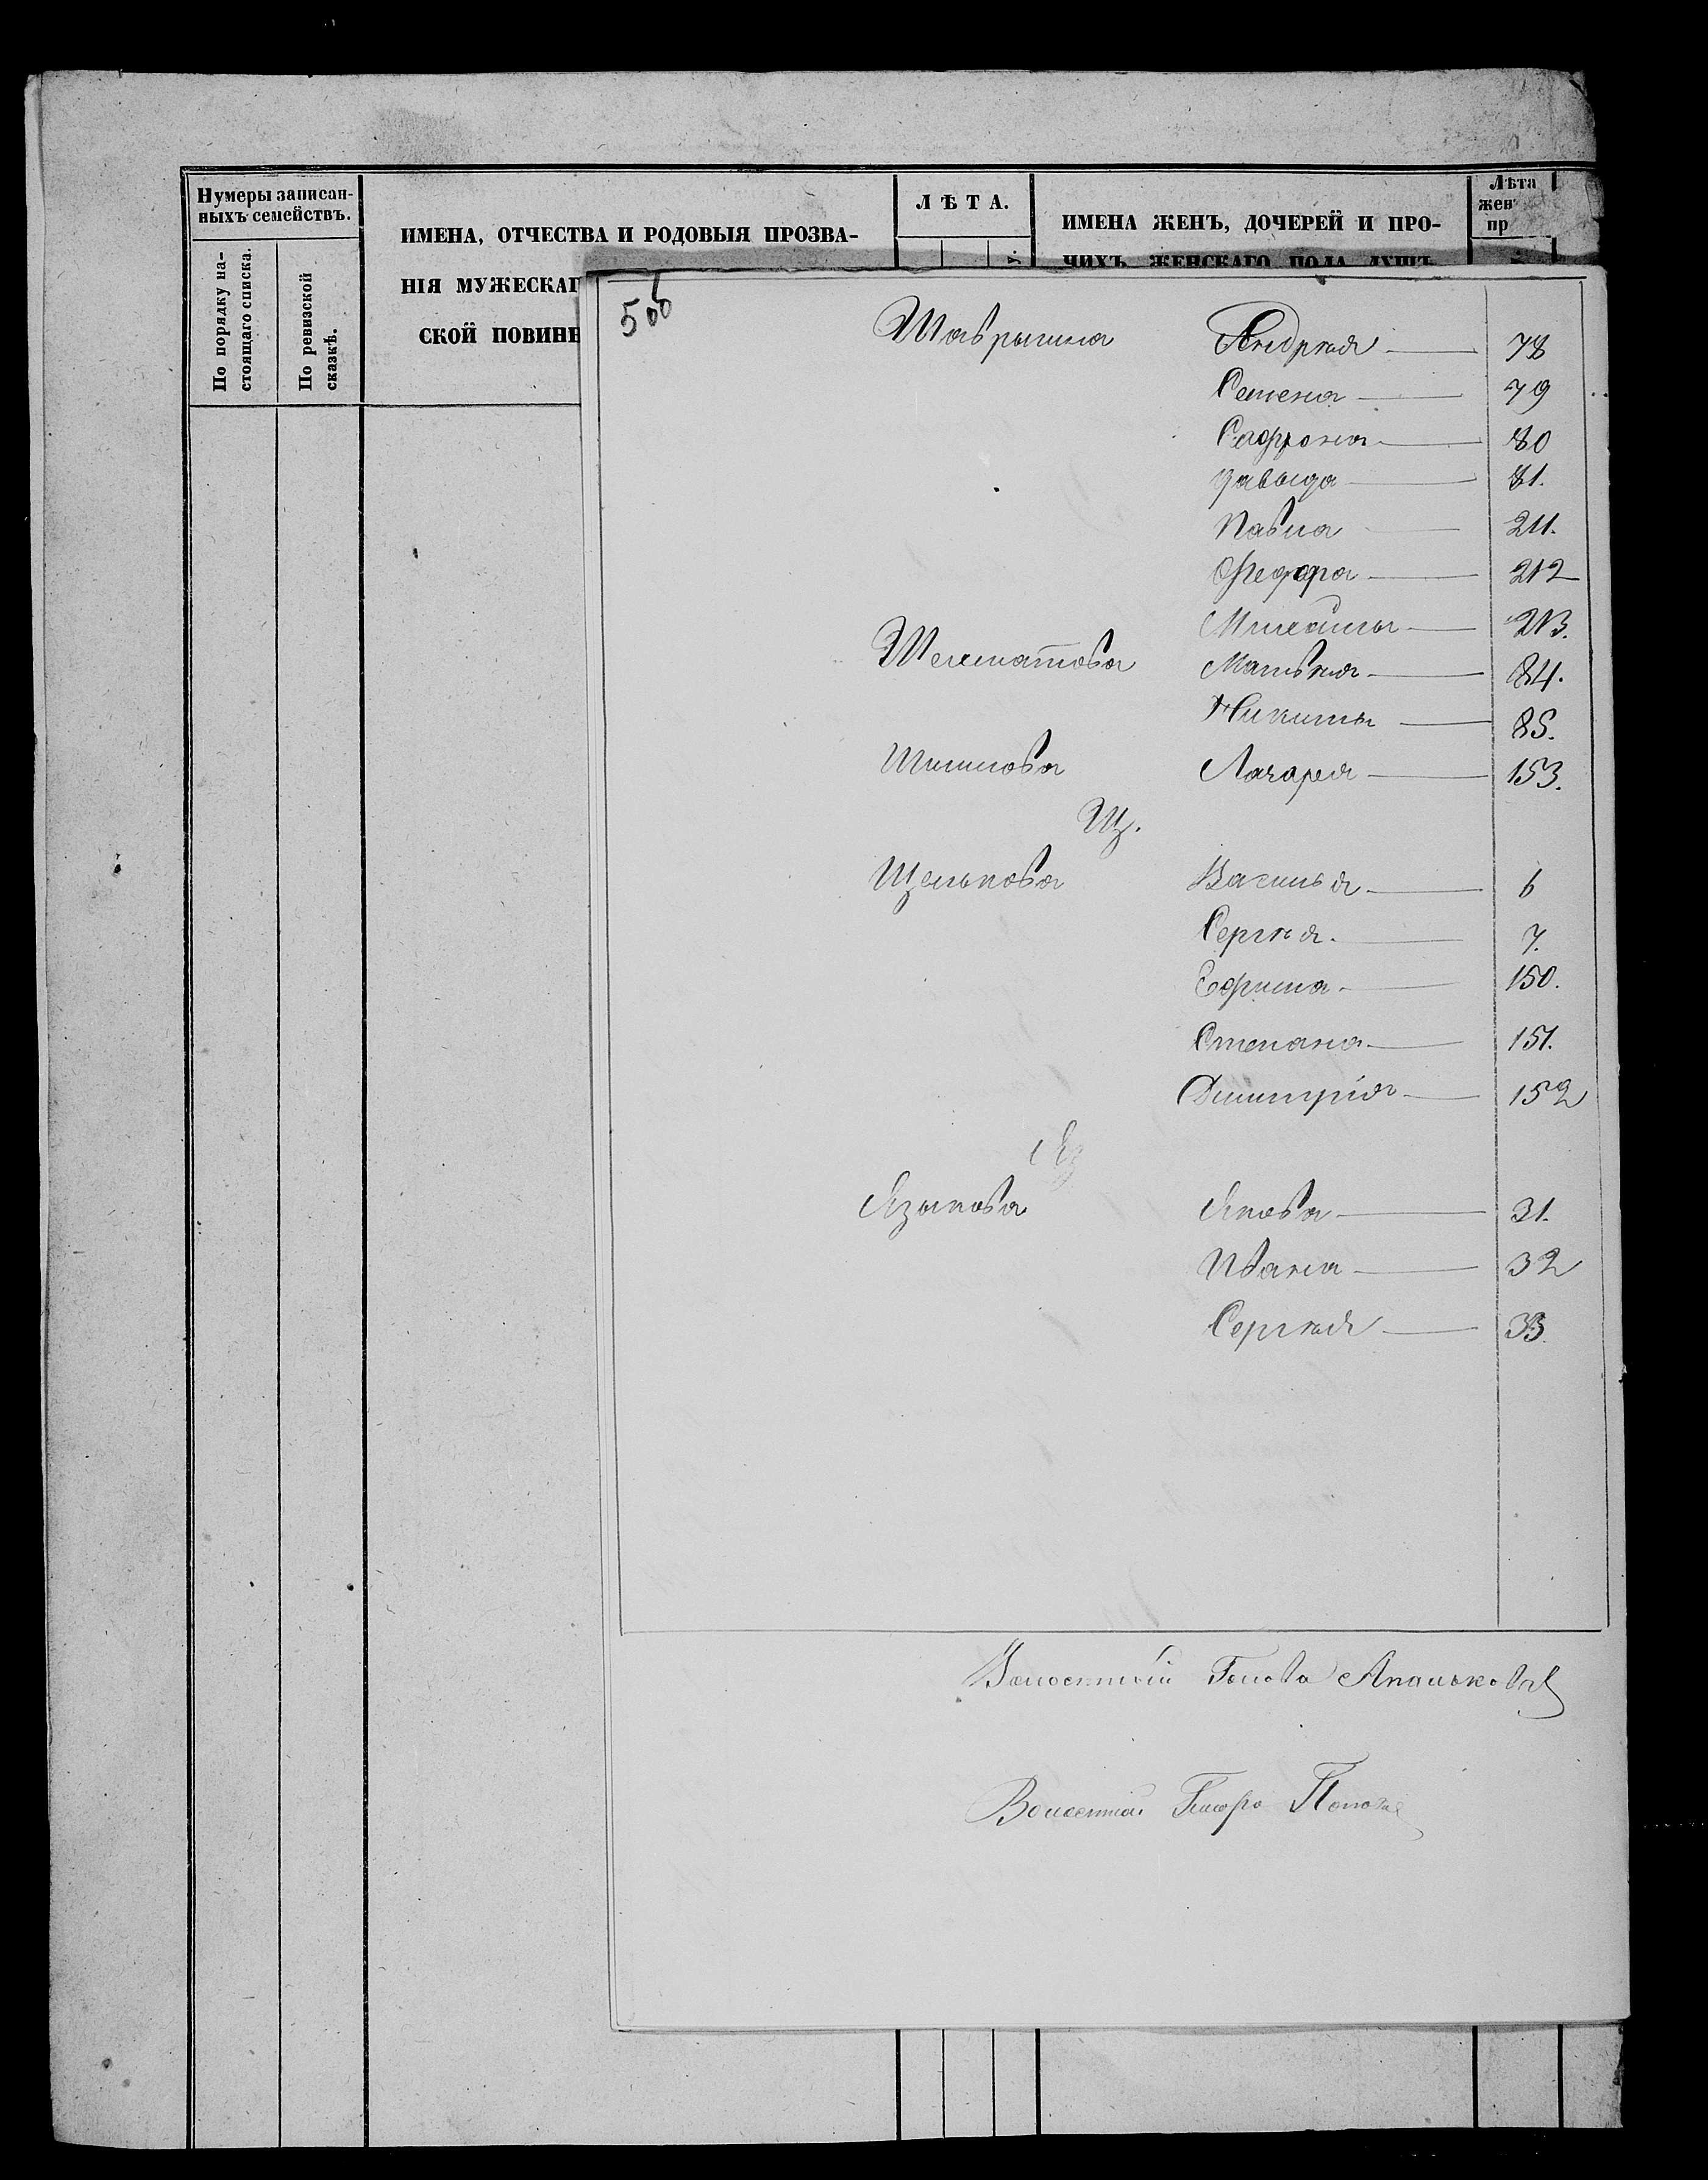 Нумеры записан-
ныхъ семействъ.
По порядку на-
стоящаго списка.
По ревизской
сказкѣ.
ИМЕНА, ОТЧЕСТВА И РОДОВЫЯ ПРОЗВА-
НІЯ МУЖЕСКАГ
СКОЙ ПОВИНН
ЛѢТА.
ИМЕНА ЖЕНЪ, ДОЧЕРЕЙ И ПРО-
ЧИХЪ ЖЕНСКАГО ПОЛА ДУШЪ
Лѣта
жен
пр
506
Шаврыгина Андрѣя 78
Семена 79
Сафрона 80
Давыда 81.
Павла 211.
Федора 212
Михаилы 213.
Шехматова Матвѣя 84.
Никиты 85.
Шишлова Лазаря 153.
Щ.
Щелькова Василья 6
Сергѣя. 7.
Ефима 150.
Степана 151.
Димитрія 152
Я
Языкова Якова 31.
Ивана 32
Сергѣя 33.
Волостный Голова Апальковъ
Волостной Писарь